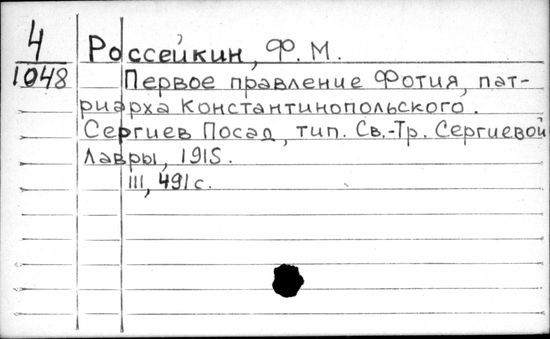 4
1048
Россейкин, Ф. М.
Первое правление Фотия, пат-
риарха Константинопольского.
Сергиев Посад, тип. Св.-Тр. Сергиевой
Лавры, 1915.
III, 491 с.